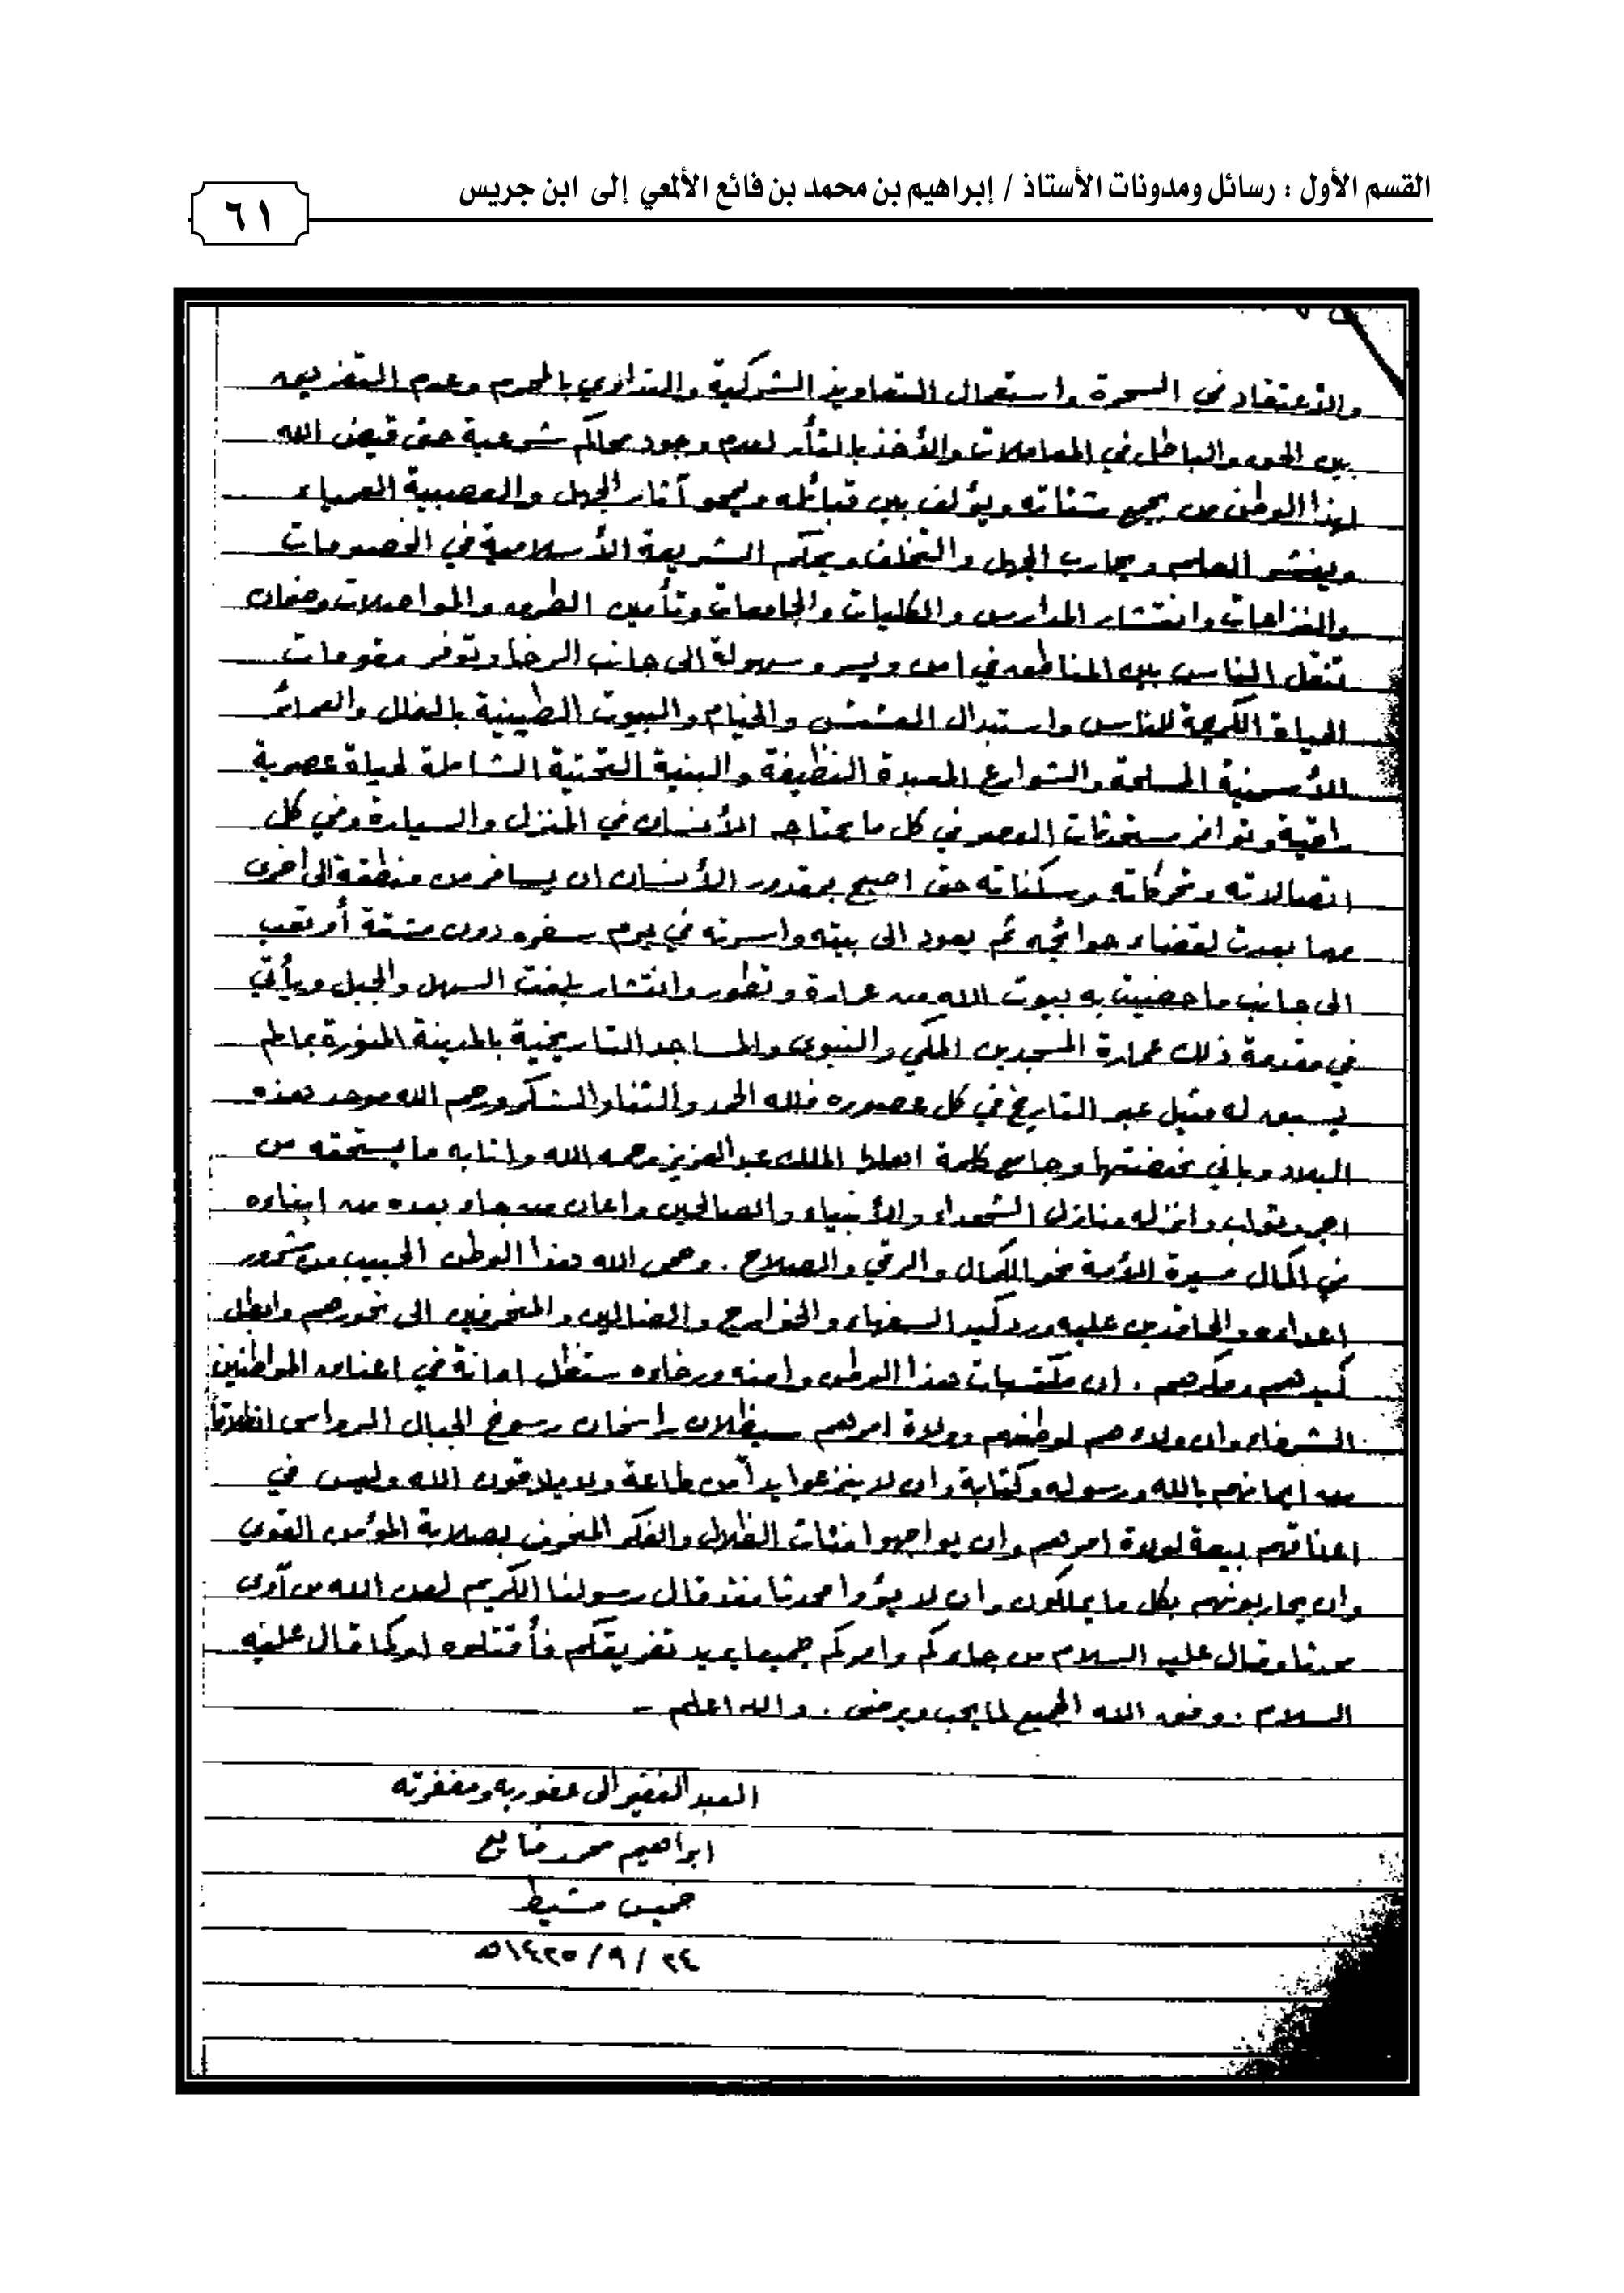 القسم الأول : رسائل ومدونات الأستاذ / إبراهيم بن محمد بن فائع الألمعي إلى ابن جريس
٦١
والأعتقاد في السحرة واستعمال التعاويذ الشركية والتداوي بالمحرم وعدم التفريق
بين الحق والباطل في المعاملات والأخذ بالثأر لعدم وجود محاكم شرعية حتى قيض الله
لهذا الوطن من يجمع شتاته ويؤلف بين قبائله ويمحو آثار الجهل والعصبية العمياء
وينشر العلم ويحارب الجهل والتخلف ويحكم الشريعة الأسلامية في الخصومات
والنزاعات وانتشار المدارس والكليات والجامعات وتأمين الطرق والمواصلات وضمان
تنقل الناس بين المناطق في امن ويسر وسهولة الى جانب الرخا وتوفر مقومات
الحياة الكريمة للناس واستبدال العشش والخيام والبيوت الطينية بالفلل والعمائر
الأسمنية المسلحة والشوارع المعبدة النظيفة والبنية التحتية الشاملة لحياة عصرية
راقية وتوافر مستحدثات العصر في كل ما يحتاجه الأنسان في المنزل والسيارة وفي كل
اتصالاته وتحركاته وسكناته حتى اصبح بمقدور الأنسان ان يسافر من منطقة الى اخرى
مهما بعدت لقضاء حوائجه ثم يعود الى بيته واسرته في يوم سفره دون مشقة أو تعب
الى جانب ما حضيت به بيوت الله من عمارة وتطور وانتشار بلغت السهل والجبل ويأتي
في مقدمة ذلك عمارة المسجدين المكي والنبوي والمساجد التاريخية بالمدينة المنورة بما لم
يسبق له مثيل عبر التاريخ في كل عصوره فلله الحمد والثنا والشكر ورحم الله موحد هذه
البلاد وباني نهضتها وجامع كلمة اهلها الملك عبدالعزيز رحمه الله واثابه ما يستحقه من
اجر وثواب وانزله منازل الشهداء والأنبياء والصالحين واعان من جاء بعده من ابناءه
في اكمال مسيرة الأمة نحو الكمال والرقي والصلاح . وحمى الله هذا الوطن الحبيب من شرور
اعداءه والحاقدين عليه ورد كيد السفهاء والخوارج والضالين والمنحرفين الى نحورهم وابطل
كيدهم ومكرهم . ان مكتسبات هذا الوطن وامنه ورخاءه ستظل امانة في اعناق المواطنين
الشرفاء وان ولاءهم لوطنهم وولاة امرهم سيظلان راسخان رسوخ الجبال الرواسي انطلاقا
من ايمانهم بالله ورسوله وكتابة وان لا ينزعوا يداً من طاعة ولا يلاقون الله وليس في
اعناقهم بيعة لولاة امرهم وان يواجهوا فئات الظلال والفكر المنحرف بصلابة المؤمن القوي
وان يحاربونهم بكل ما يملكون وان لا يؤوا محدثا فقد قال رسولنا الكريم لعن الله من آوى
محدثا وقال عليه السلام من جاءكم وامركم جميعا يريد تفريقكم فأقتلوه او كما قال عليه
السلام . وفق الله الجميع لما يحب ويرضى . والله اعلم -
العبد الفقير الى عفو ربه ومغفرته
ابراهيم محمد فايع
خميس مشيط
٢٤ / ٩ / ١٤٢٥هـ